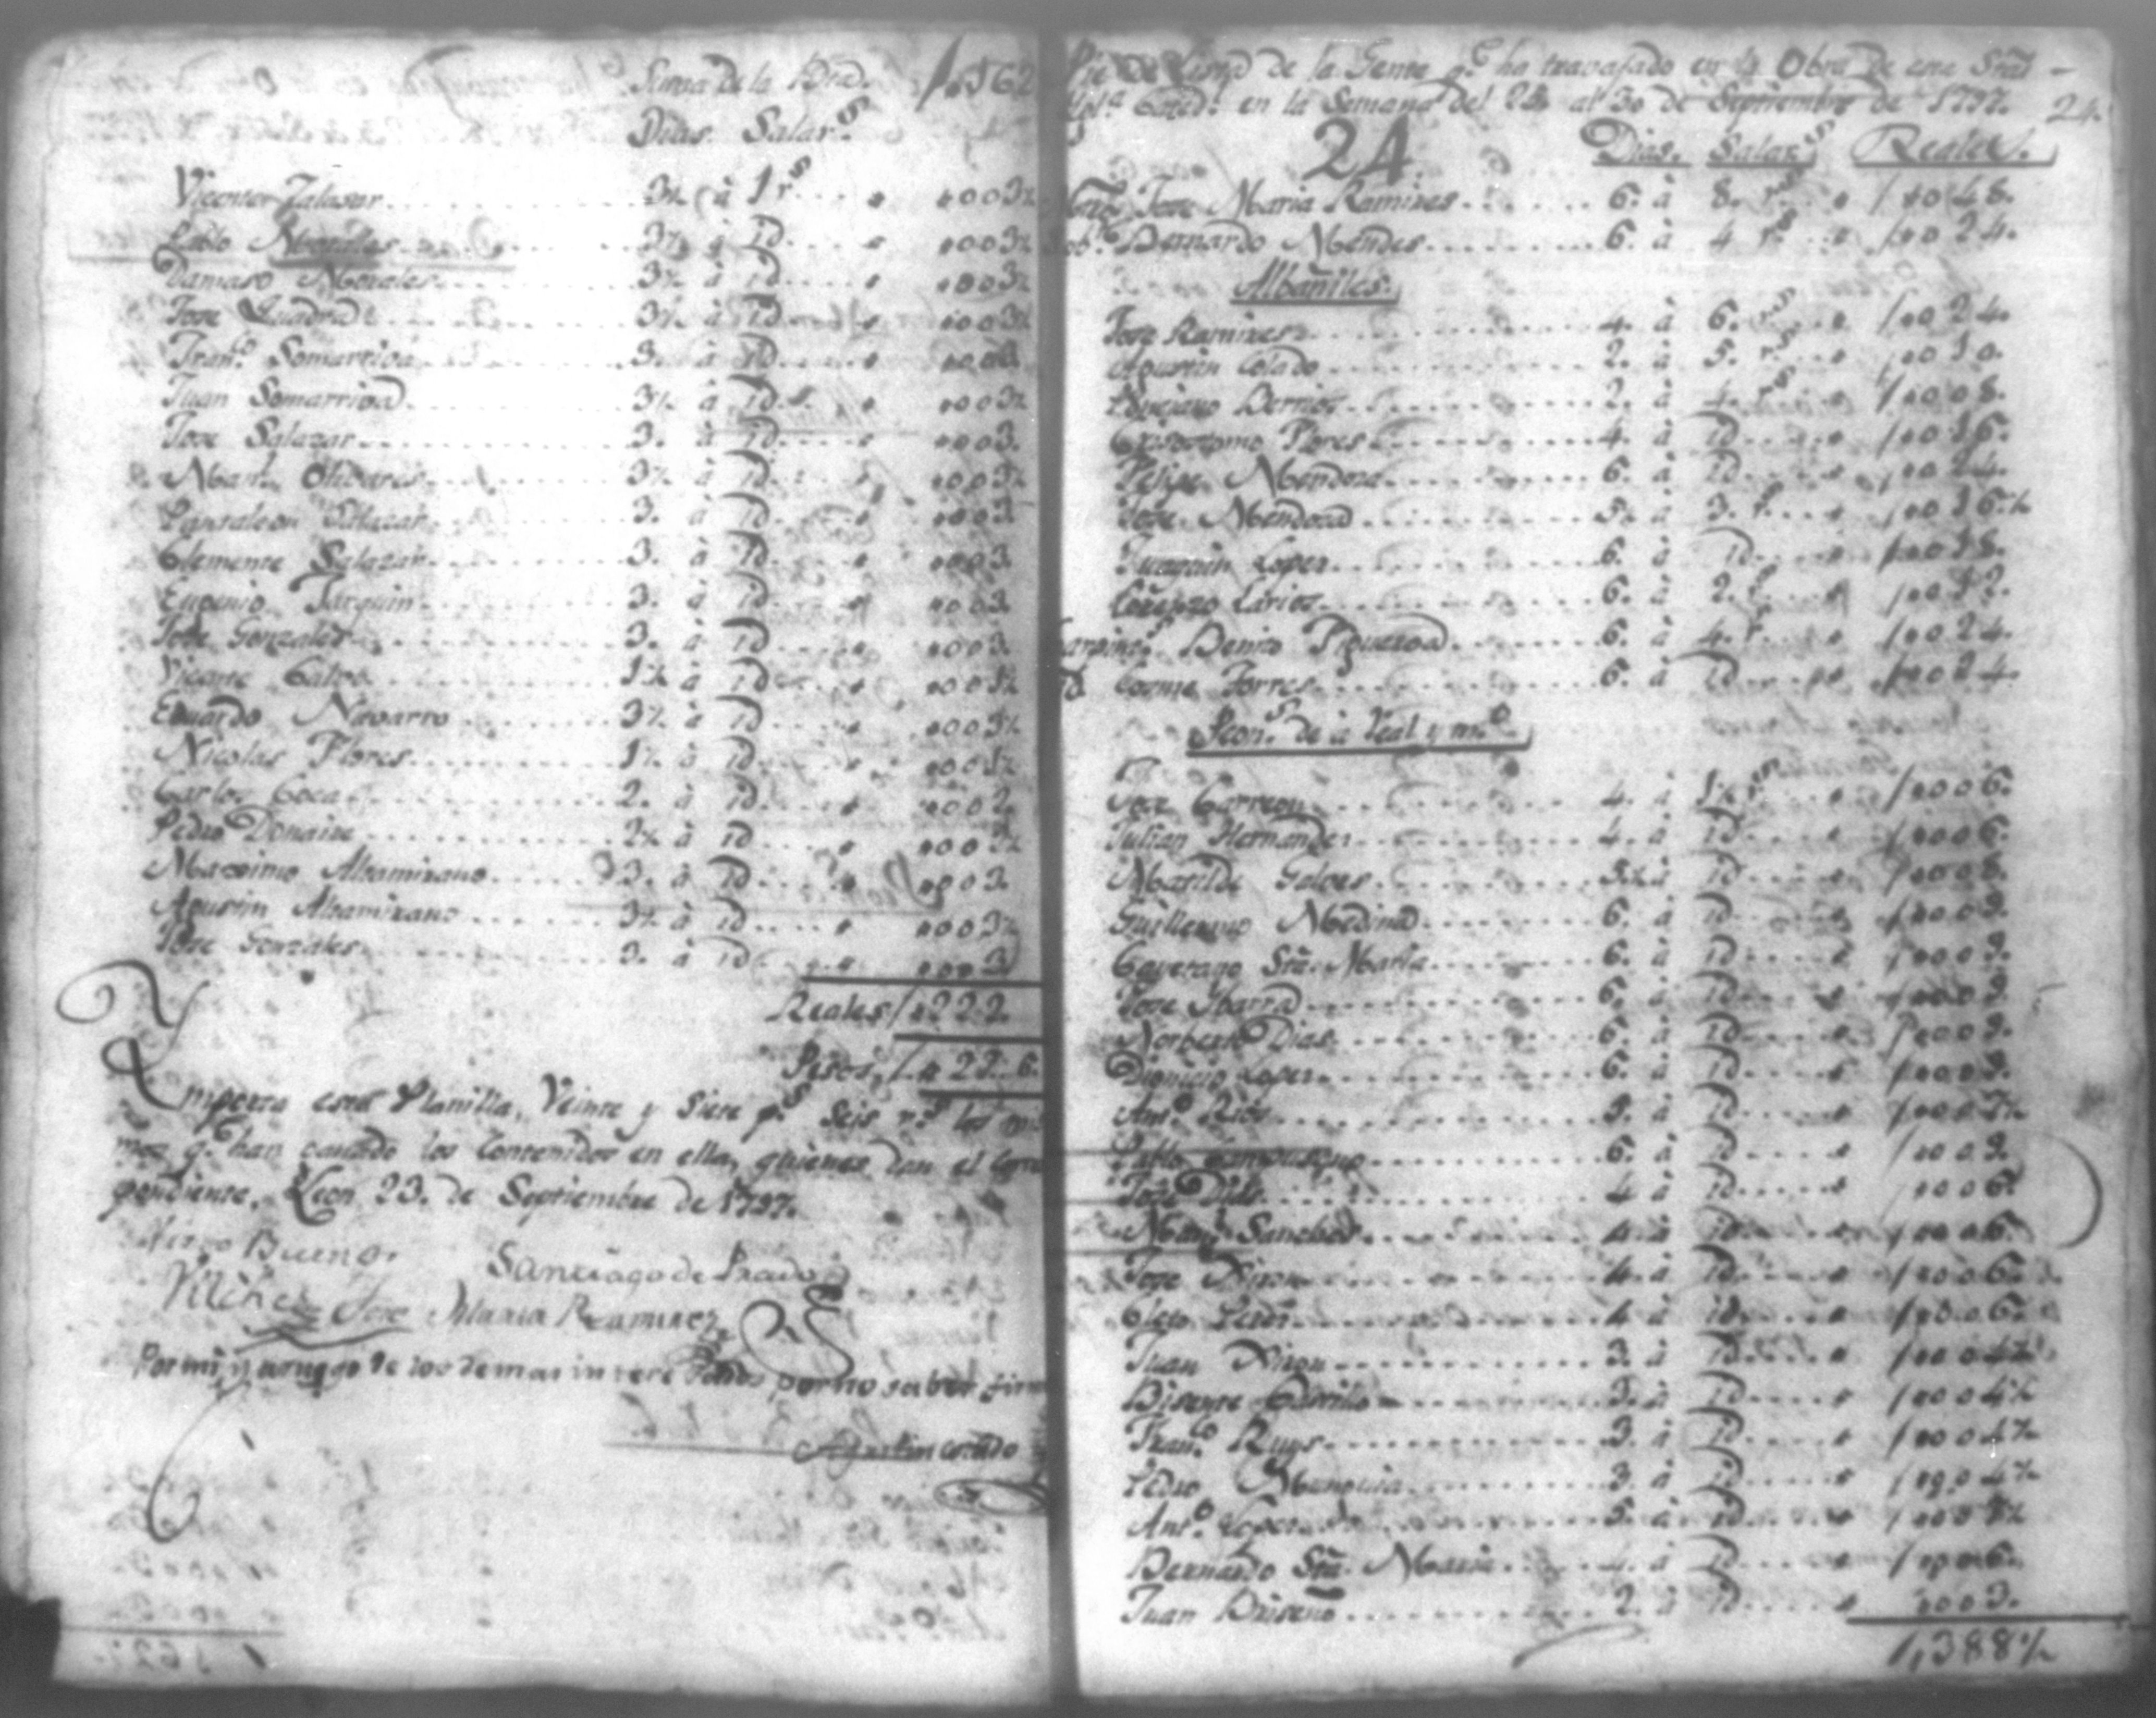 Suma de la Bta. 1.162
Dias. Salar.s
Vicente Zalasar 3½ à 1 rs 0003½
Pablo Morales 3½ à id 0003½
Damaso Morales 3½ à id 0003½
Jose Quadra 3½ à id 0003½
Fran.co Somarriva 3. à id 0003
Juan Somarriva 3½ à id 0003½
Jose Salazar 3. à id 0003.
Man.l Olibares 3½ à id 0003½
Pantaleon Salazar 3. à id 0003
Clemente Salazar 3. à id 0003
Eugenio Jarquin 3. à id 0003
Jose Gonzales 3. à id 0003.
Vicente Calvo 1½ à id 0001½
Eduardo Navarro 3½ à id 0003½
Nicolas Flores 1½ à id 0001½
Carlos Coca 2. à id 0002
Pedro Donaire à id
Maximo Altamirano 3. à id 0003
Agustin Altamirano 3½ à id 0003½
Jose Gonzales 3. à id 0003
Reales 222.
Pesos 27.6.
Importa esta Planilla, Veinte y Siete p.s Seis r.s los mis
mos q.e han causado los Contenidos en ella, quienes dan el Corres
pondiente. Leon 23. de Septiembre de 1797.
Bueno. Santiago de Prado
Vilchez Jose Maria Ramirez
Por mi, y a ruego de los demas interesados por no saber firm
Agustin Corado
Pie de Lista de la Gente q.e ha travajado en la Obra de esta Sta.
Ygl.a Cated.l en la Semana del 24 al 30 de Septiembre de 1797. 24.
24 Dias. Salar.s Reales.
Jose Maria Ramires 6. à 8. r.s 0048.
Bernardo Mendes 6. à 4 r.s 0024.
Albañiles.
Jose Ramires 4. à 6. r.s 0024.
Agustin Colado 2. à 5. r.s 0010.
Ponciano Berrios 2. à 4. r.s 0008.
Crisostomo Flores 4. à id 0016.
Felipe Mendoza 6. à id 0024.
Jose Mendoza 5½ à 3. r.s 0016½
Juaquin Lopez 6. à id 0018.
Lorenzo Larios 6. à 2. r.s 0012.
Carpint.o Benito Figueroa 6. à 4. r.s 0024.
id Cosme Torres 6. à id 0024.
Peon.s de à real y m.o
Jose Carreon 4. à 1½ r.s 0006.
Julian Hernandez 4. à id 0006.
Matilde Galves à id 0008.
Guillermo Medina 6. à id 0009.
Cayetano Sta. Maria 6. à id 0009.
Jose Ibarra 6. à id 0009.
Norberto Dias 6. à id 0009.
Dionicio Lopez 6. à id 0009.
Ant.o Rios 5. à id 0007½
Pablo 6. à id 0009.
Jose Dias 4 à id 0006.
Man.l Sanches 4. à id 0006.
Jose Niron 4. à id 0006.
Cleto 4 à id 0006.
Juan Niron 3. à id 0004½
Bisente Carrillo 3. à id 0004½
Fran.co Ruys 3. à id 0004½
Pedro 3. à id 0004½
Ant.o Lopez 5. à id 0007½
Bernardo Sta. Maria 4. à id 0006.
Juan Briseño 2. à id 0003.
1,388½